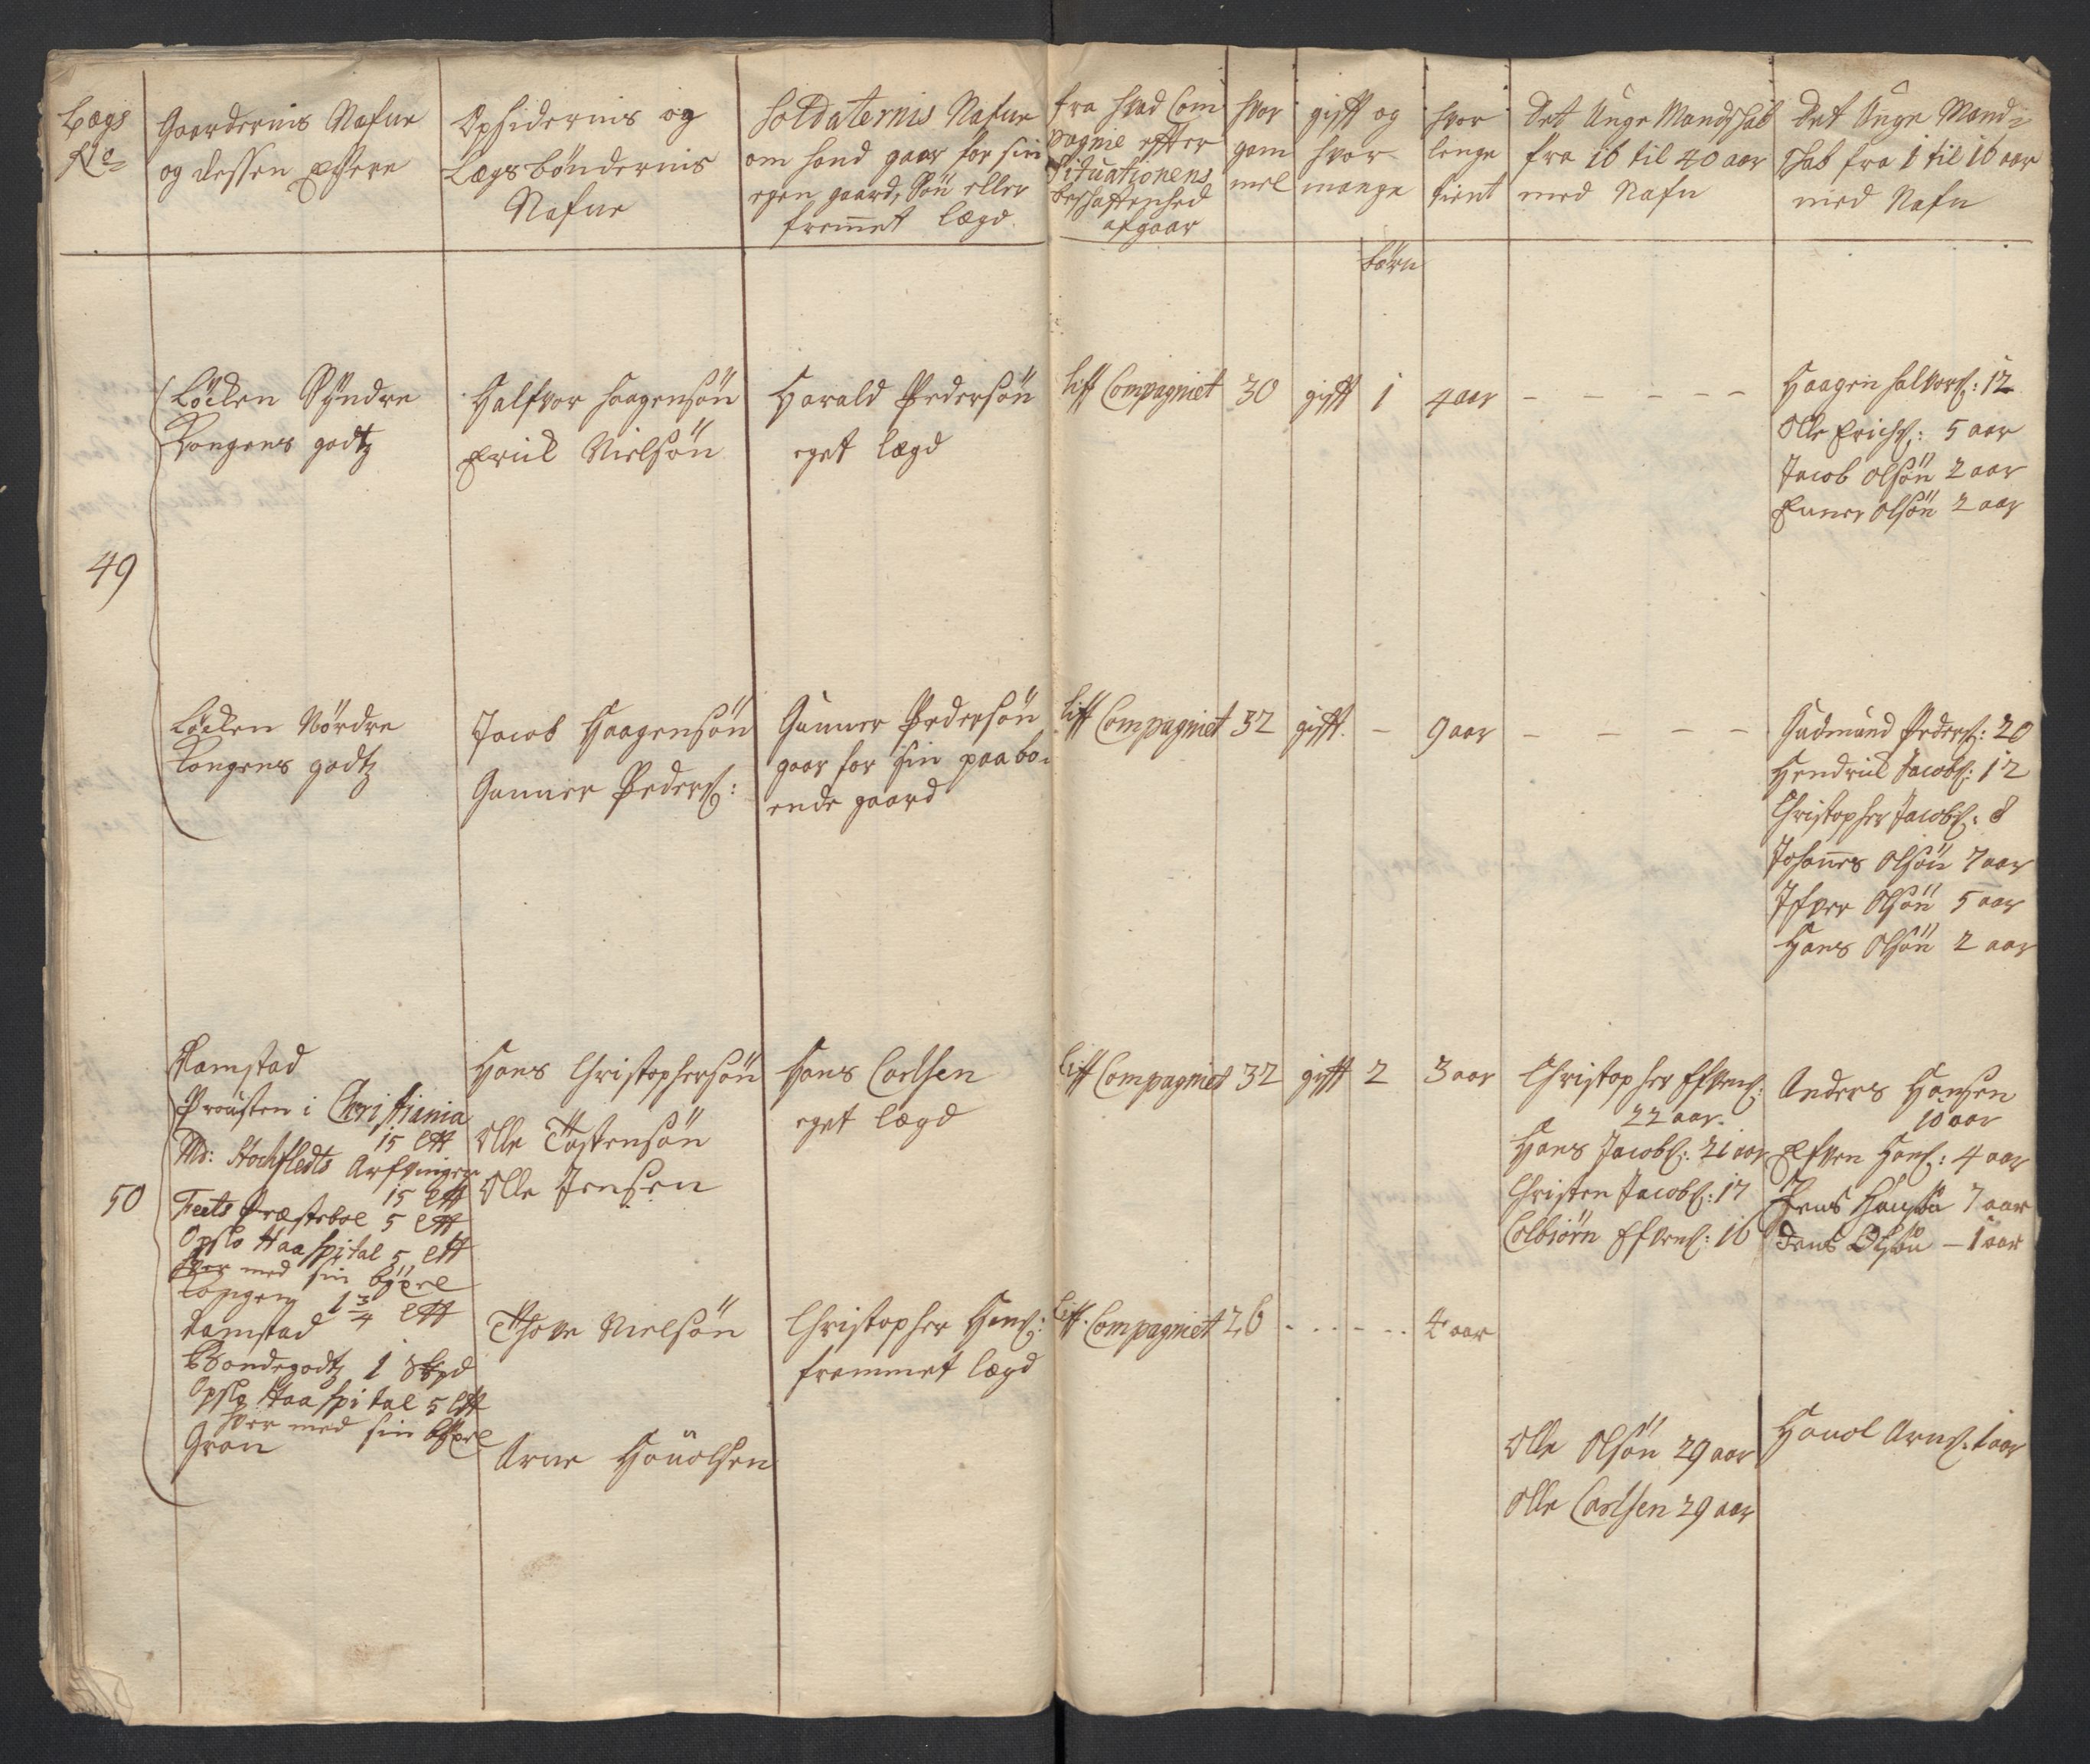 Lægs
No
Gaardernis Nafne
og dessen Eÿere
Opsidernis og
Lægsböndernis
Nafne
Soldaternis Nafne
om hand gaar for sin
egen gaard, Sön eller
frem̄et lægd.
fra hvad Com
pagnie effter
Situationens
beschaffenhed
afgaar
hvor
gam
mel
gifft og
hvor
mange
börn
hvor
lenge
tient
Det Unge Mandskab
fra 16 til 40 aar
med Nafn
Det Unge Mand-
skab fra 1 til 16 aar
med Nafn
49
Löcken Syndre
Kongens godtz
Halfvor Haagensön
Erick Nielsön
Harald Pedersön
eget lægd
liff Compagniet 30 gifft 1 4 aar - - - - -
Haagen Halvors: 12
Olle Erichs: 5 aar
Jacob Olsön 2 aar
Enner Olsön 2 aar
Löcken Nördre
Kongens godtz
Jacob Haagensön
Gunner Peders:
Gunner Pedersön
gaar for sin paabo-
ende gaard
liff Compagniet 32 gifft. - 9 aar - - - -
Gudmund Peders: 20
Hendrick Jacobs: 12
Christopher Jacobs: 8
Johan̄es Olsön 7 aar
Ifver Olsön 5 aar
Hans Olsön 2 aar
50
Ramstad
Prousten i Christiania
15 ℔
Md: Stochfledts Arfvinger
15 ℔
Feets Præstebol 5 ℔
Opslo Haaspital 5 ℔
hver med sin bÿxel
Kongen 1 3/4 ℔
Ramstad
Bondegodtz 1 Skpd
Opslo Haaspital 5 ℔
hver med sin bÿxel
Gran
Hans Christophersön
Olle Tostensön
Olle Jensen
Hans Carlsen
eget lægd
liff Compagniet 32 gifft 2 3 aar
Christopher Efvens:
22 aar.
Hans Jacobs: 21 aar
Christen Jacobs: 17
Colbiörn Efvens: 16
Anders Hansen
10 aar
Efven Hans: 4 aar
Jens Hansön 7 aar
Jens Olsön - 1 aar
Thove Nielsön
Christopher Hans:
frammet lægd
liff. Compagniet 26 - - - - - 4 aar
Arne Houolsen
Olle Olsön 29 aar
Olle Carlsen 29 aar
Houol Arnes: 1 aar